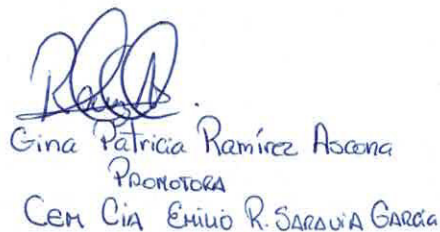 Gina Patricia Ramírez Ascona
PROMOTORA
CEM CIA EMILIO R. SARAVIA GARCIA